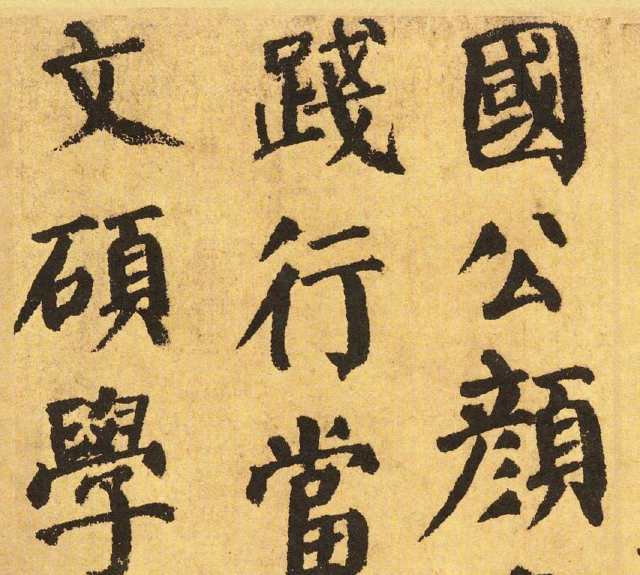 國公顏
踐行當
文碩學